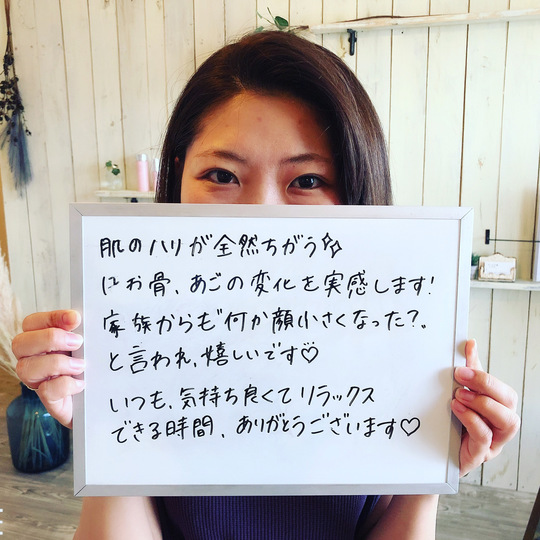 肌のハリが全然ちがう✨
ほお骨、あごの変化を実感します!
家族からも"何か顔小さくなった?"
と言われ、嬉しいです♡
いつも、気持ち良くてリラックス
できる時間、ありがとうございます♡